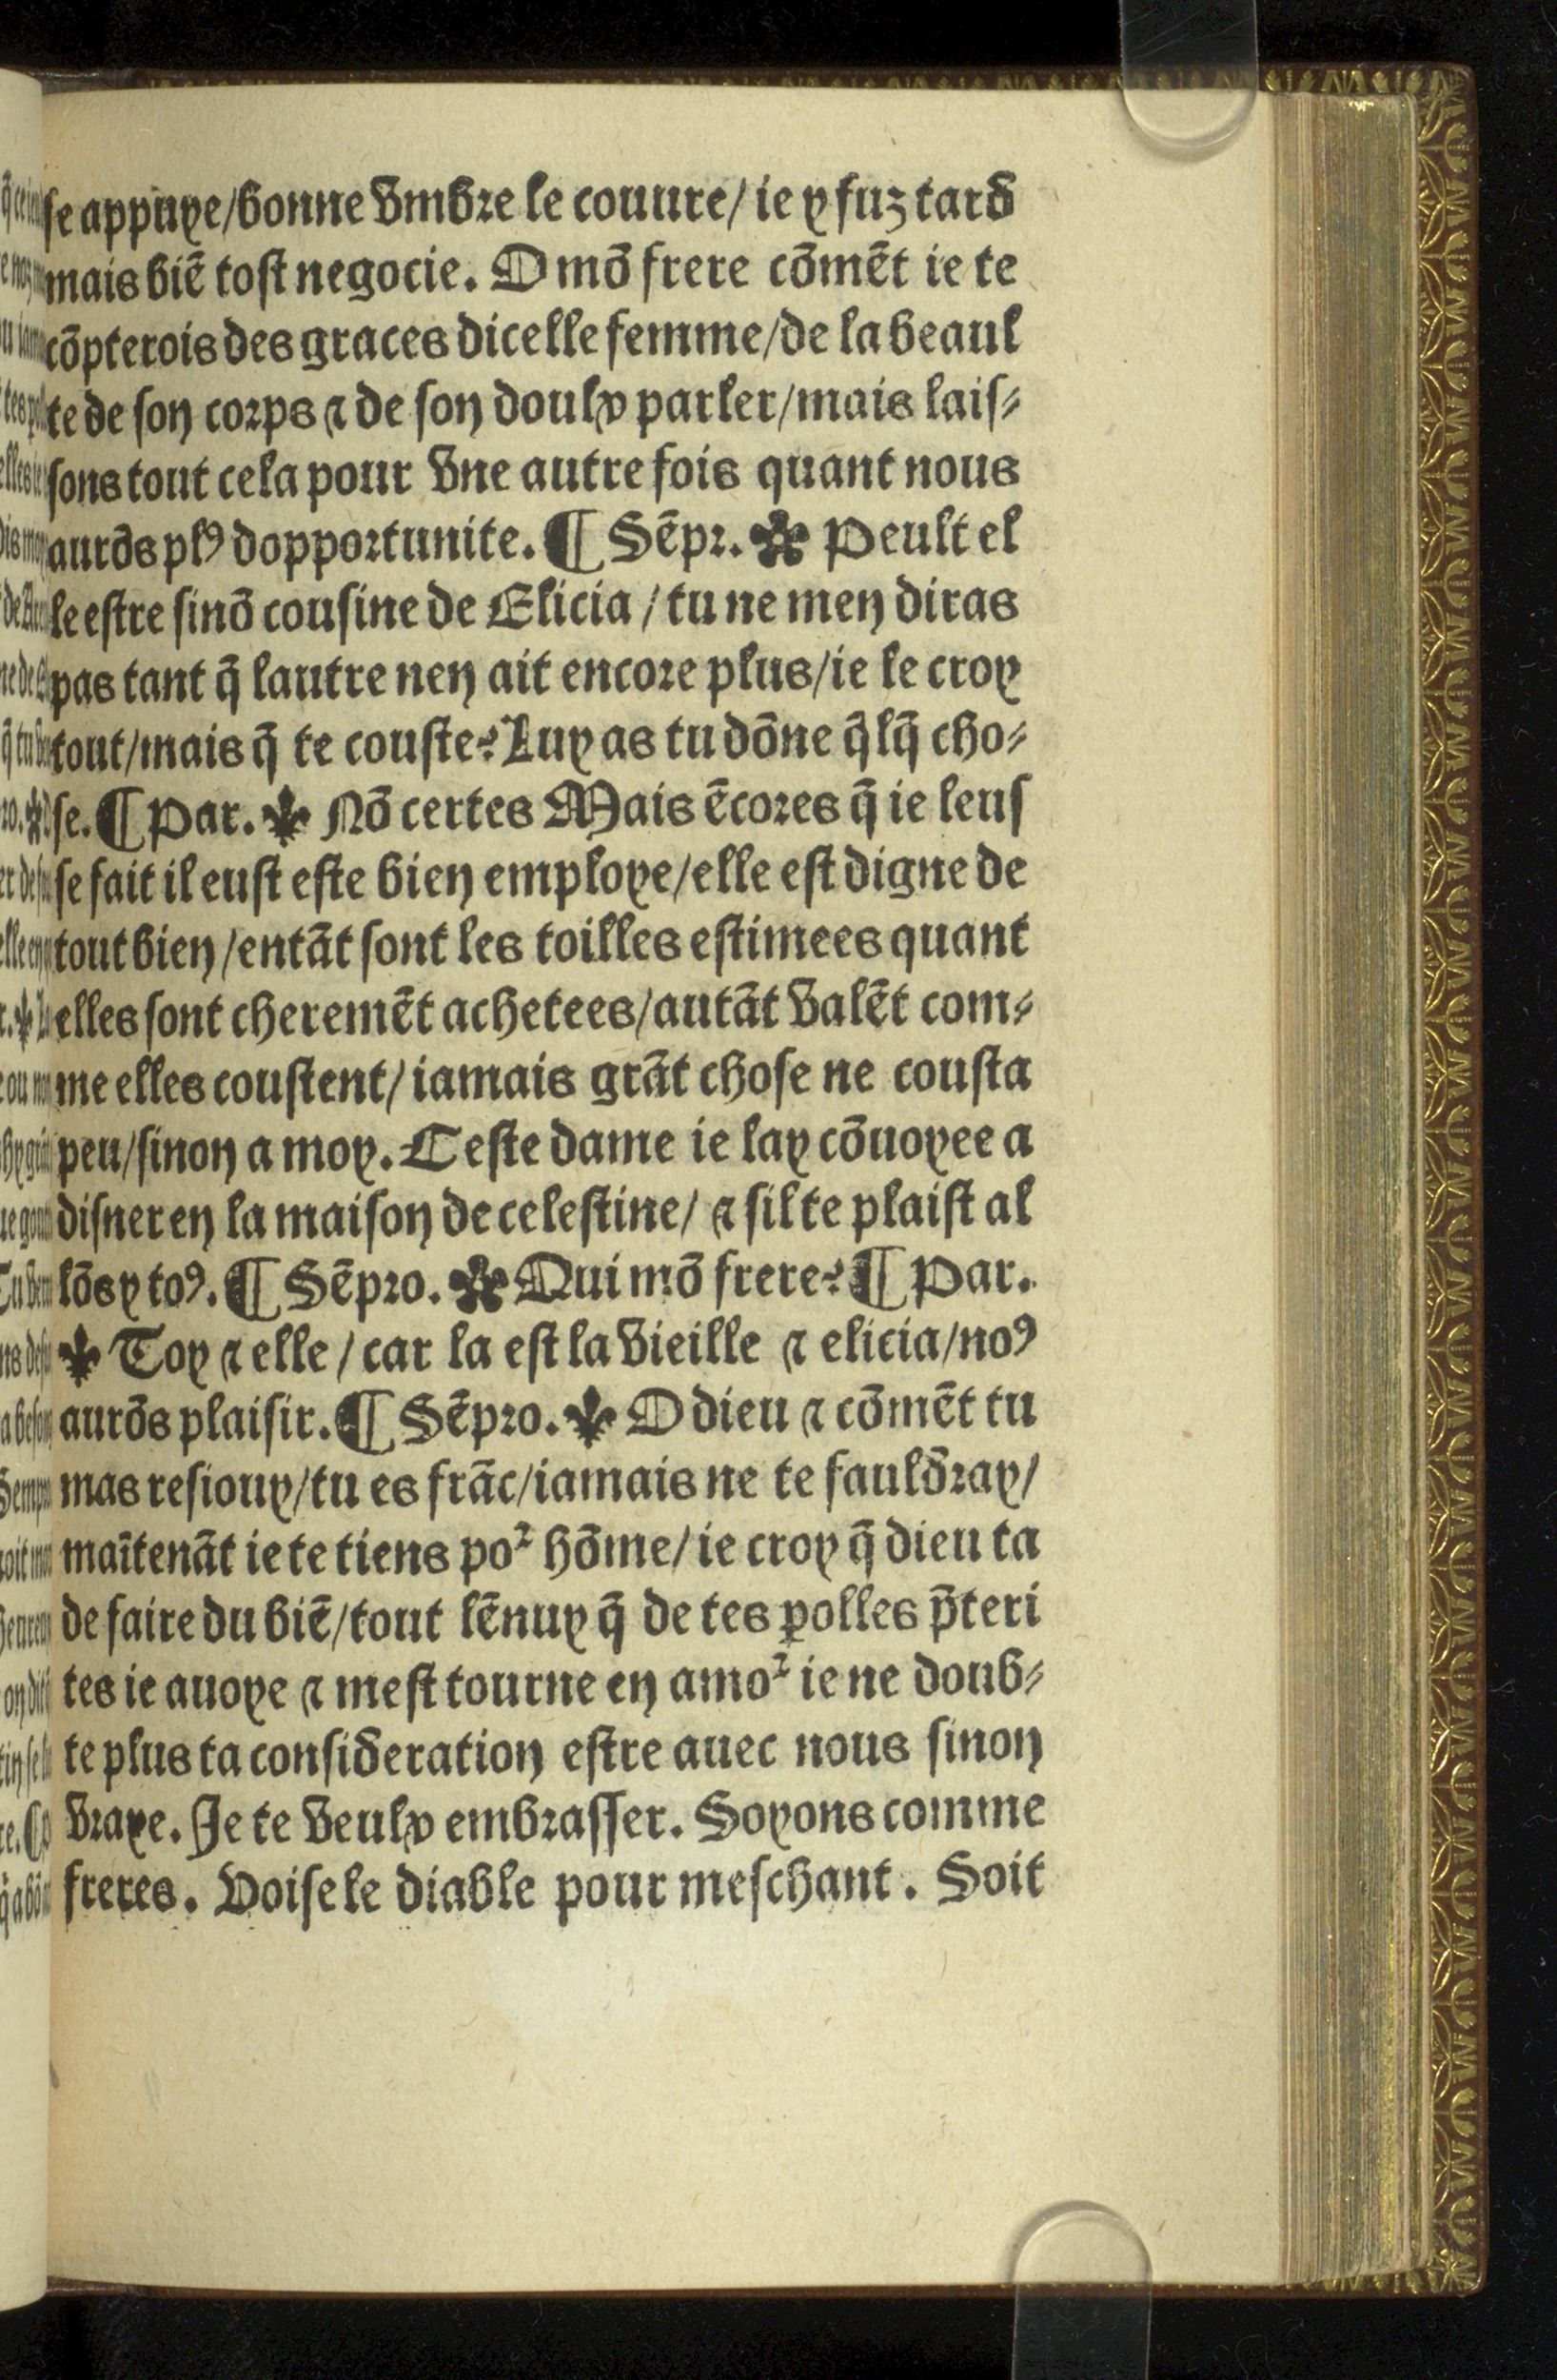 se appuye/bonne vmbre le couure/ ie y fuz tard
mais biē tost negocie. O mō frere cōmēt ie te
cōpterois des graces dicelle femme/de la beaul
te de son corps ⁊ de son doulx parler/mais lais⸗
sons tout cela pour vne autre fois quant nous
aurōs plꝰ dopportunite. ¶ Sēpr. ✤ Peult el
le estre sinō cousine de Elicia / tu ne men diras
pas tant q̄ lautre nen ait encore plus/ie le croy
tout/mais q̄ te couste? Luy as tu dōne q̄lq̄ cho⸗
se. ¶ Par. ⚜ Nō certes Mais ēcores q̄ ie leus
se fait il eust este bien employe/elle est digne de
tout bien/entāt sont les toilles estimees quant
elles sont cheremēt achetees/autāt valēt com⸗
me elles coustent/ iamais grāt chose ne cousta
peu/sinon a moy. Ceste dame ie lay cōuoyee a
disner en la maison de celestine/ ⁊ sil te plaist al
lōs y toꝰ. ¶ Sēpro. ✤ Qui mō frere? ¶ Par.
⚜ Toy ⁊ elle / car la est la vieille ⁊ elicia/noꝰ
aurōs plaisir. ¶ Sēpro. ⚜ O dieu ⁊ cōmēt tu
mas resiouy/tu es frāc/iamais ne te fauldray/
maītenāt ie te tiens poꝛ hōme/ ie croy q̄ dieu ta
de faire du biē/tout lēnuy q̄ de tes ꝑolles p̄teri
tes ie auoye ⁊ mest tourne en amoꝛ ie ne doub⸗
te plus ta consideration estre auec nous sinon
vraye. Je te veulx embrasser. Soyons comme
freres. Voise le diable pour meschant. Soit